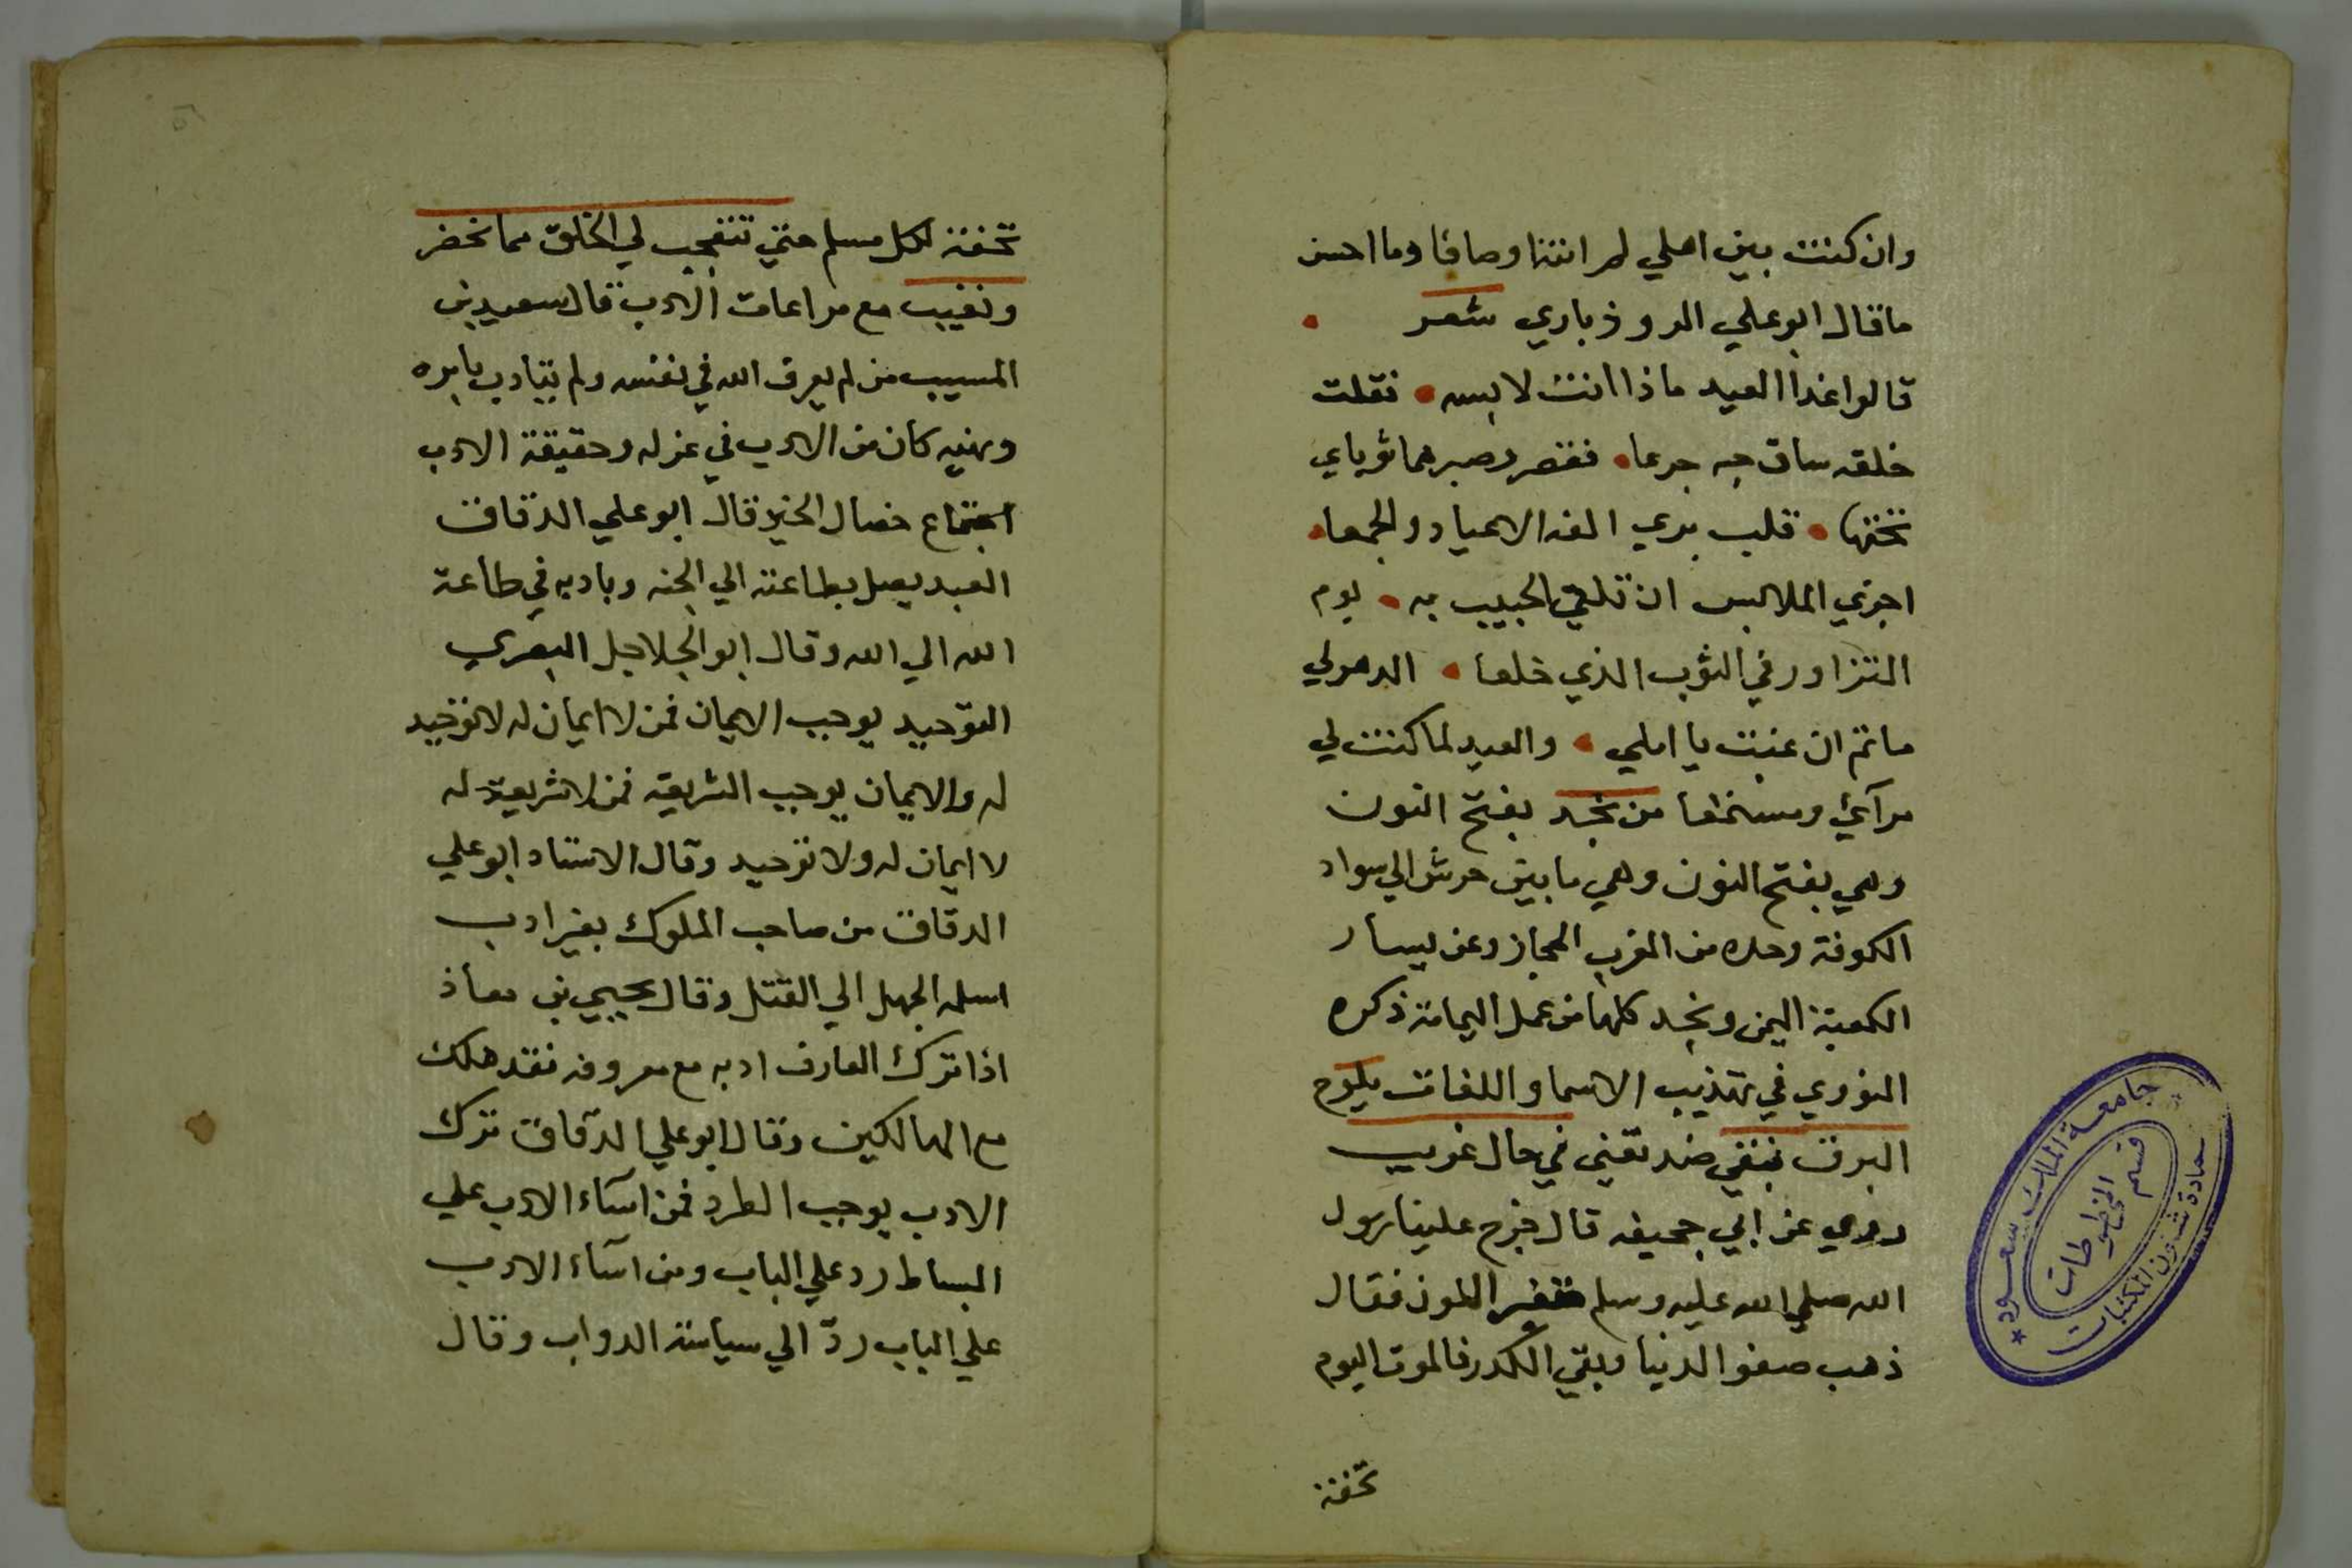 وان كنت بين اهلي لمر انتها وصافا وما احسن
ما قال ابو علي الروذباري شعر
قالوا غدا العيد ماذا انت لابسه • فقلت
خلقه ساق حبه جرعا • فقر وصبر هما ثوباي
تحتها • قلب يري الفه الاعياد والجمعا •
احري الملابس ان تلقي الحبيب به • يوم
التزاور في الثوب الذي خلعا • الدهر لي
ماتم ان غبت يا املي • والعيد لما كنت لي
مرآي ومستمعا من نجد بفتح النون
وهي بفتح النون وهي ما بين حرش الي سواد
الكوفة وحده من الغرب الحجاز وعن يسار
الكعبة اليمن ونجد كلها من عمل اليمامة ذكره
النووي في تهذيب الاسما واللغات يلوح
البرق بنفي ضد تقني في حال غريب
روي عن ابي جحيفه قال خرج علينا رسول
الله صلي الله عليه وسلم متغير اللون فقال
ذهب صفو الدنيا وبقي الكدر فالموت اليوم
تحفة
تحفة لكل مسلم حتي تنفجب لي الخلق مما تحضر
وتغيب مع مراعات الادب قال سعيد بن
المسيب من لم يعرف الله في نفسه ولم يتادب بامره
ونهيه كان من الادب في عزله وحقيقة الادب
اجتماع خصال الخير قال ابو علي الدقاق
العبد يصل بطاعته الي الجنه وبادبه في طاعة
الله الي الله وقال ابو الجلاجل البصري
التوحيد يوجب الايمان فمن لا ايمان له لا توحيد
له والايمان يوجب الشريعه فمن لا شريعة له
لا ايمان له ولا توحيد وقال الاستاد ابو علي
الدقاق من صاحب الملوك بغير ادب
اسلمه الجهل الي القتل وقال يحيي بن معاذ
اذا ترك العارف ادبه مع معروفه فقد هلك
مع الهالكين وقال ابو علي الدقاق ترك
الادب يوجب الطرد فمن اساء الادب علي
البساط رد علي الباب ومن اساء الادب
علي الباب ردّ الي سياسة الدواب وقال
جامعة الملك سعود
قسم المخطوطات
عمادة شئون المكتبات